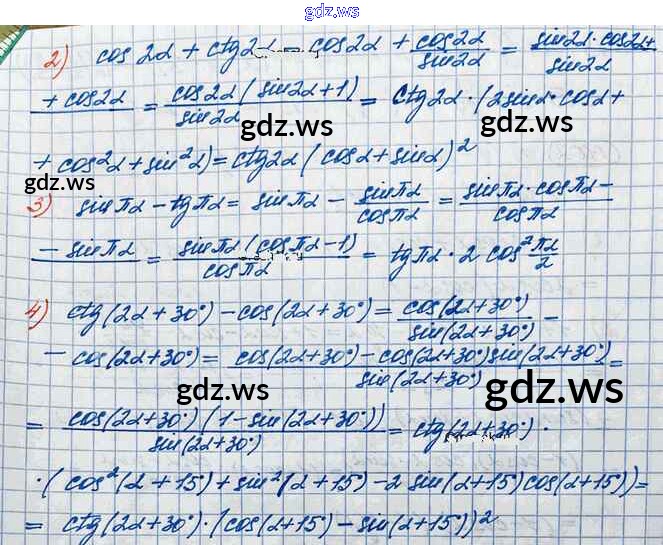 gdz.ws
2) cos2α + ctg2α = cos2α + cos2α/sin2α = sin2α·cos2α+/sin2α
+cos2α/ = cos2α(sin2α+1)/sin2α = ctg2α·(2sinα·cosα+
gdz.ws
+cos²α+sin²α)=ctg2α(cosα+sinα)²
gdz.ws
3) sinπα−tgπα= sinπα − sinπα/cosπα = sinπα·cosπα−/cosπα
−sinπα/ = sinπα(cosπα−1)/cosπα = tgπα·2cos²πα/2
4) ctg(2α+30°)−cos(2α+30°)= cos(2α+30°)/sin(2α+30°) −
−cos(2α+30°)= cos(2α+30°)−cos(2α+30°)sin(2α+30°)/sin(2α+30°) =
gdz.ws
gdz.ws
= cos(2α+30°)(1−sin(2α+30°))/sin(2α+30°) = ctg(2α+30°)·
·(cos²(α+15°)+sin²(α+15)−2sin(α+15°)cos(α+15°))=
= ctg(2α+30°)·(cos(α+15°)−sin(α+15°))²